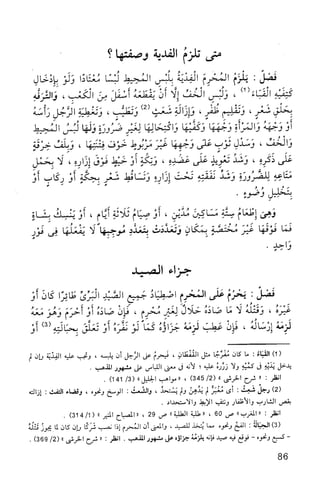 متى تلزمُ الفدية وصفتها؟
فَصْلٌ : يَلْزَمُ الْمُحْرِمَ الْفِدْيَةُ بِلُبْسِ الْمُحِيطِ لُبْسًا مُعْتَادًا وَلَوْ بِإِدْخَالِ
كَتِفَيْهِ الْقَبَاءَ (١) ، وَلُبْسِ الْخُفِّ إِلَّا أَنْ يَقْطَعَهُ أَسْفَلَ مِنَ الْكَعْبِ ، وَالتَّرَفُّهِ
بِحَلْقِ شَعْرٍ ، وَتَقْلِيمِ ظُفْرٍ ، وَإِزَالَةِ شَعَثٍ (٢) وَتَطَيُّبٍ ، وَتَغْطِيَةِ الرَّجُلِ رَأْسَهُ
أَوْ وَجْهَهُ وَالْمَرْأَةِ وَجْهَهَا وَكَفَّيْهَا وَاكْتِحَالِهَا لِغَيْرِ ضَرُورَةٍ وَلَهَا لُبْسُ الْمُحِيطِ
وَالْخُفِّ ، وَسَدْلُ ثَوْبٍ عَلَى وَجْهِهَا غَيْرَ مَرْبُوطٍ خَوْفَ فِتْنَتِهَا ، وَبِلَفِّ خِرْقَةٍ
عَلَى ذَكَرِهِ ، وَشَدِّ تَعْوِيذٍ عَلَى عَضُدِهِ ، وَتِكَّةٍ أَوْ خَيْطٍ فَوْقَ إِزَارِهِ ، لَا بِحَمْلِ
مَتَاعِهِ لِلضَّرُورَةِ وَشَدِّ نَفَقَتِهِ تَحْتَ إِزَارِهِ وَتَسَاقُطِ شَعْرٍ بِحَكَّةٍ أَوْ رِكَابٍ أَوْ
بِتَخْلِيلِ وُضُوءٍ .
وَهِيَ إِطْعَامُ سِتَّةِ مَسَاكِينَ مُدَّيْنِ ، أَوْ صِيَامُ ثَلَاثَةِ أَيَّامٍ ، أَوْ يَنْسُكُ بِشَاةٍ
فَمَا فَوْقَهَا غَيْرَ مُخْتَصَّةٍ بِمَكَانٍ وَتَعَدَّدَتْ بِتَعَدُّدِ مُوجِبِهَا لَا يَفْعَلُهَا فِى فَوْرٍ
وَاحِدٍ .
جزاء الصيد
فَصْلٌ : يَحْرُمُ عَلَى الْمُحْرِمِ اصْطِيَادُ جَمِيعِ الصَّيْدِ الْبَرِّىِّ طَائِرًا كَانَ أَوْ
غَيْرَهُ ، وَقَتْلُهُ لَا مَا صَادَهُ حَلَالٌ لِغَيْرِ مُحْرِمٍ ، فَإِنْ صَادَهُ أَوْ أَحْرَمَ وَهُوَ مَعَهُ
لَزِمَهُ إِرْسَالُهُ ، فَإِنْ عَطِبَ لَزِمَهُ جَزَاؤُهُ كَمَا لَوْ نَفَّرَهُ أَوْ تَعَلَّقَ بِحِبَالَتِهِ (٣) أَوْ
(١) القَبَاءُ : ما كان مُفَرَّجًا مثل القُفْطَانِ ، فيحرم على الرَّجل أن يلبسه ، وتجب عليه الفِدْية وإن لم
يدخل يَدَيْهِ فى كُمَّيْهِ ولا زرره عليه ؛ لأنه فى معنى اللباس على مشهور المذهب .
انظر : « شرح الخرشى » (345/2) ، « مواهب الجليل » (141/3) .
(٢) رجلٌ شَعِثٌ : أى مُغْبَرٌّ لم يدَّهن ولم يَمْتشط ، والشَّعَث : الوسخ ونحوه ، وقضاء التَّفث : إزالته
بقصّ الشارب والأظفار ونتف الإبط والاستحداد .
انظر : « المُغرب » ص 60 ، « طلبة الطلبة » ص 29 ، « المصباح المنير » (314/1) .
(٣) الحِبَالَةُ : الفخُّ ونحوه مما يُتخذ للصيد ، والمعنى أن المحرم إذا نصب شَرَكًا وإن كان لما يجوز قَتْلُه
- كسبع ونحوه - فوقع فيه صيد فإنه يلزمُه جزاؤه على مشهور المذهب . انظر : « شرح الخرشى » (369/2) .
86